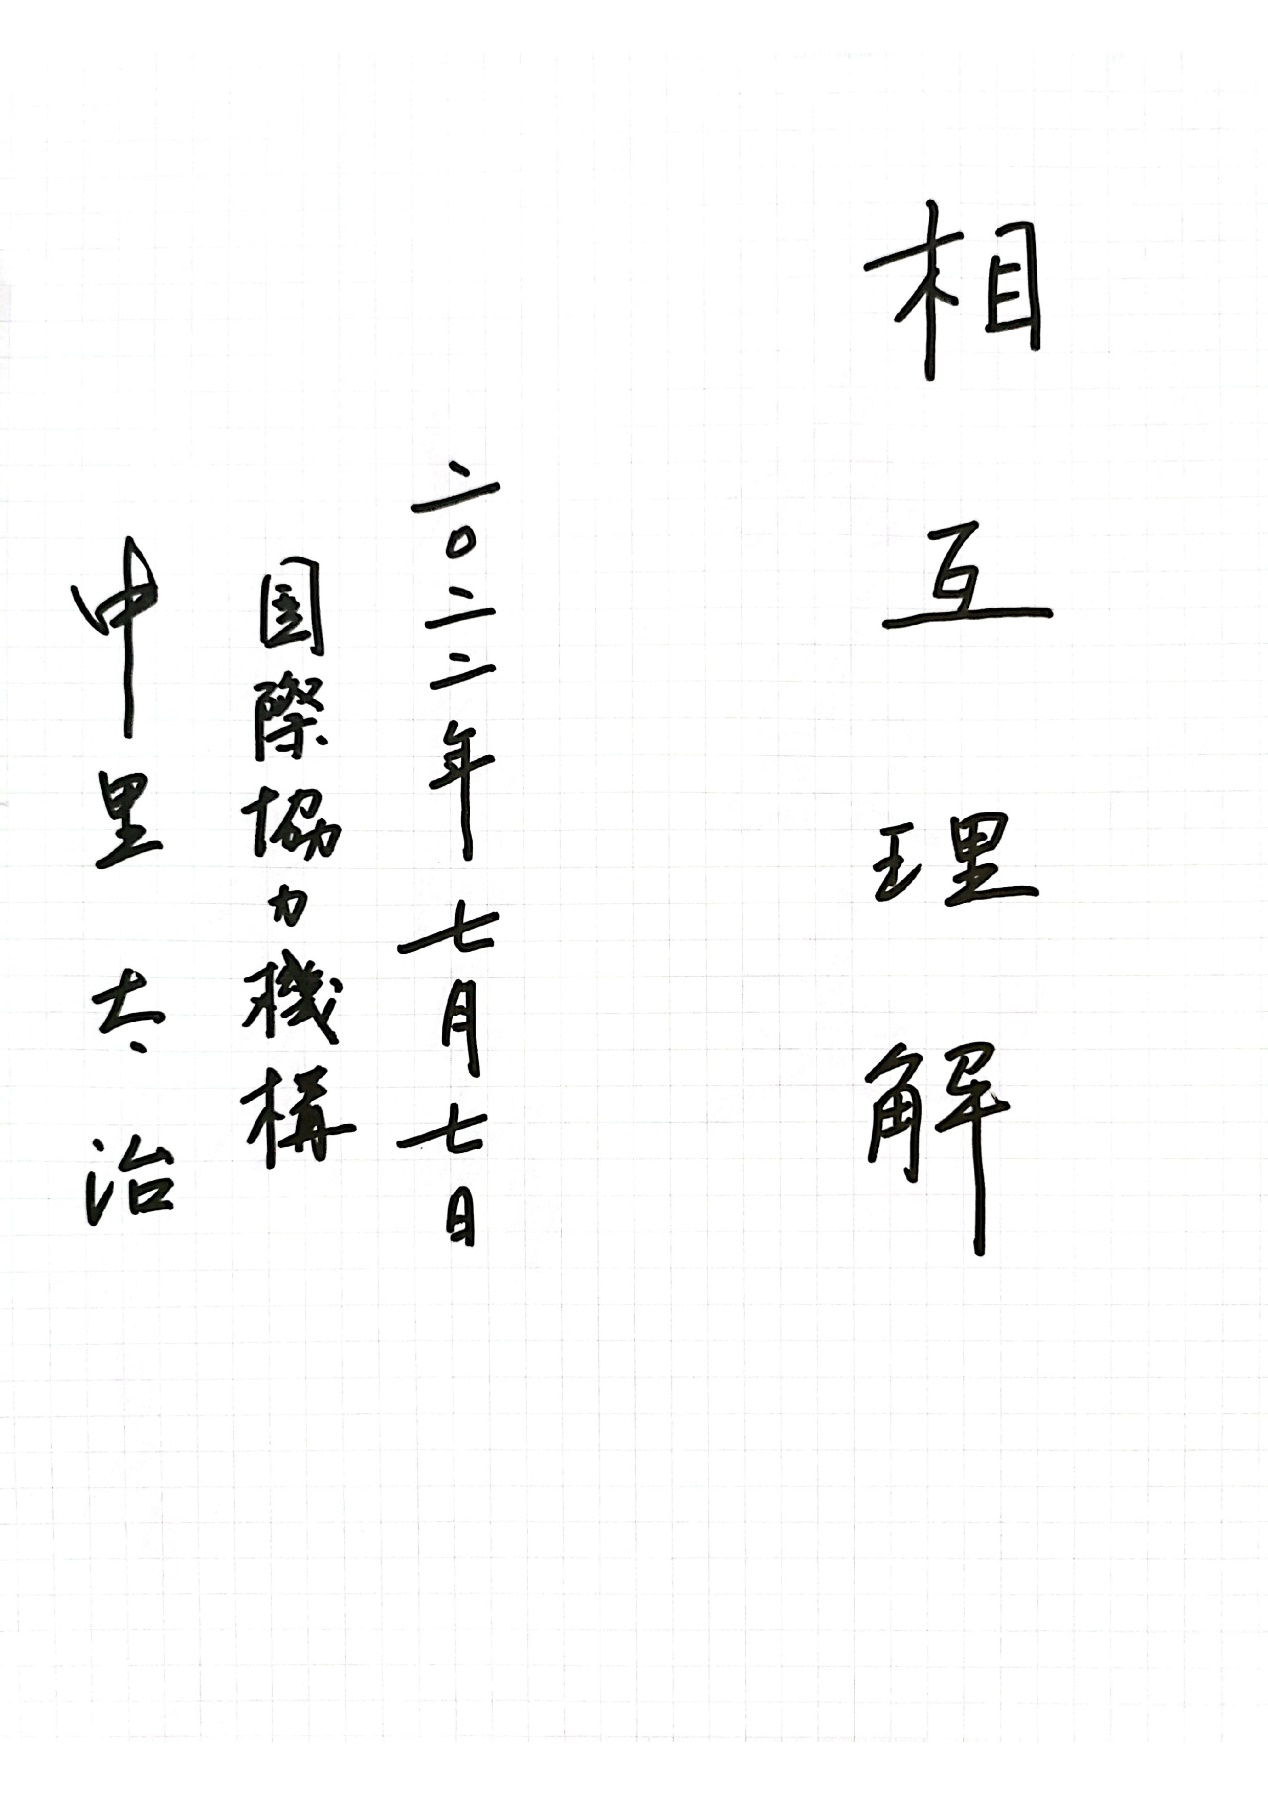 相互理解
二〇二二年七月七日
国際協力機構
中里太治